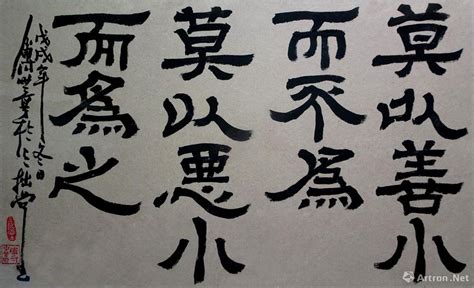 莫以善小
而不為
莫以悪小
而為之
戊戌年冬日
Artron.Net